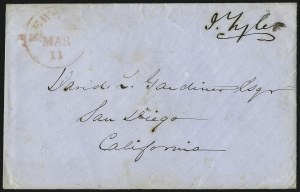 J. Tyler
MAR
11
David L. Gardiner Esqr
San Diego
California